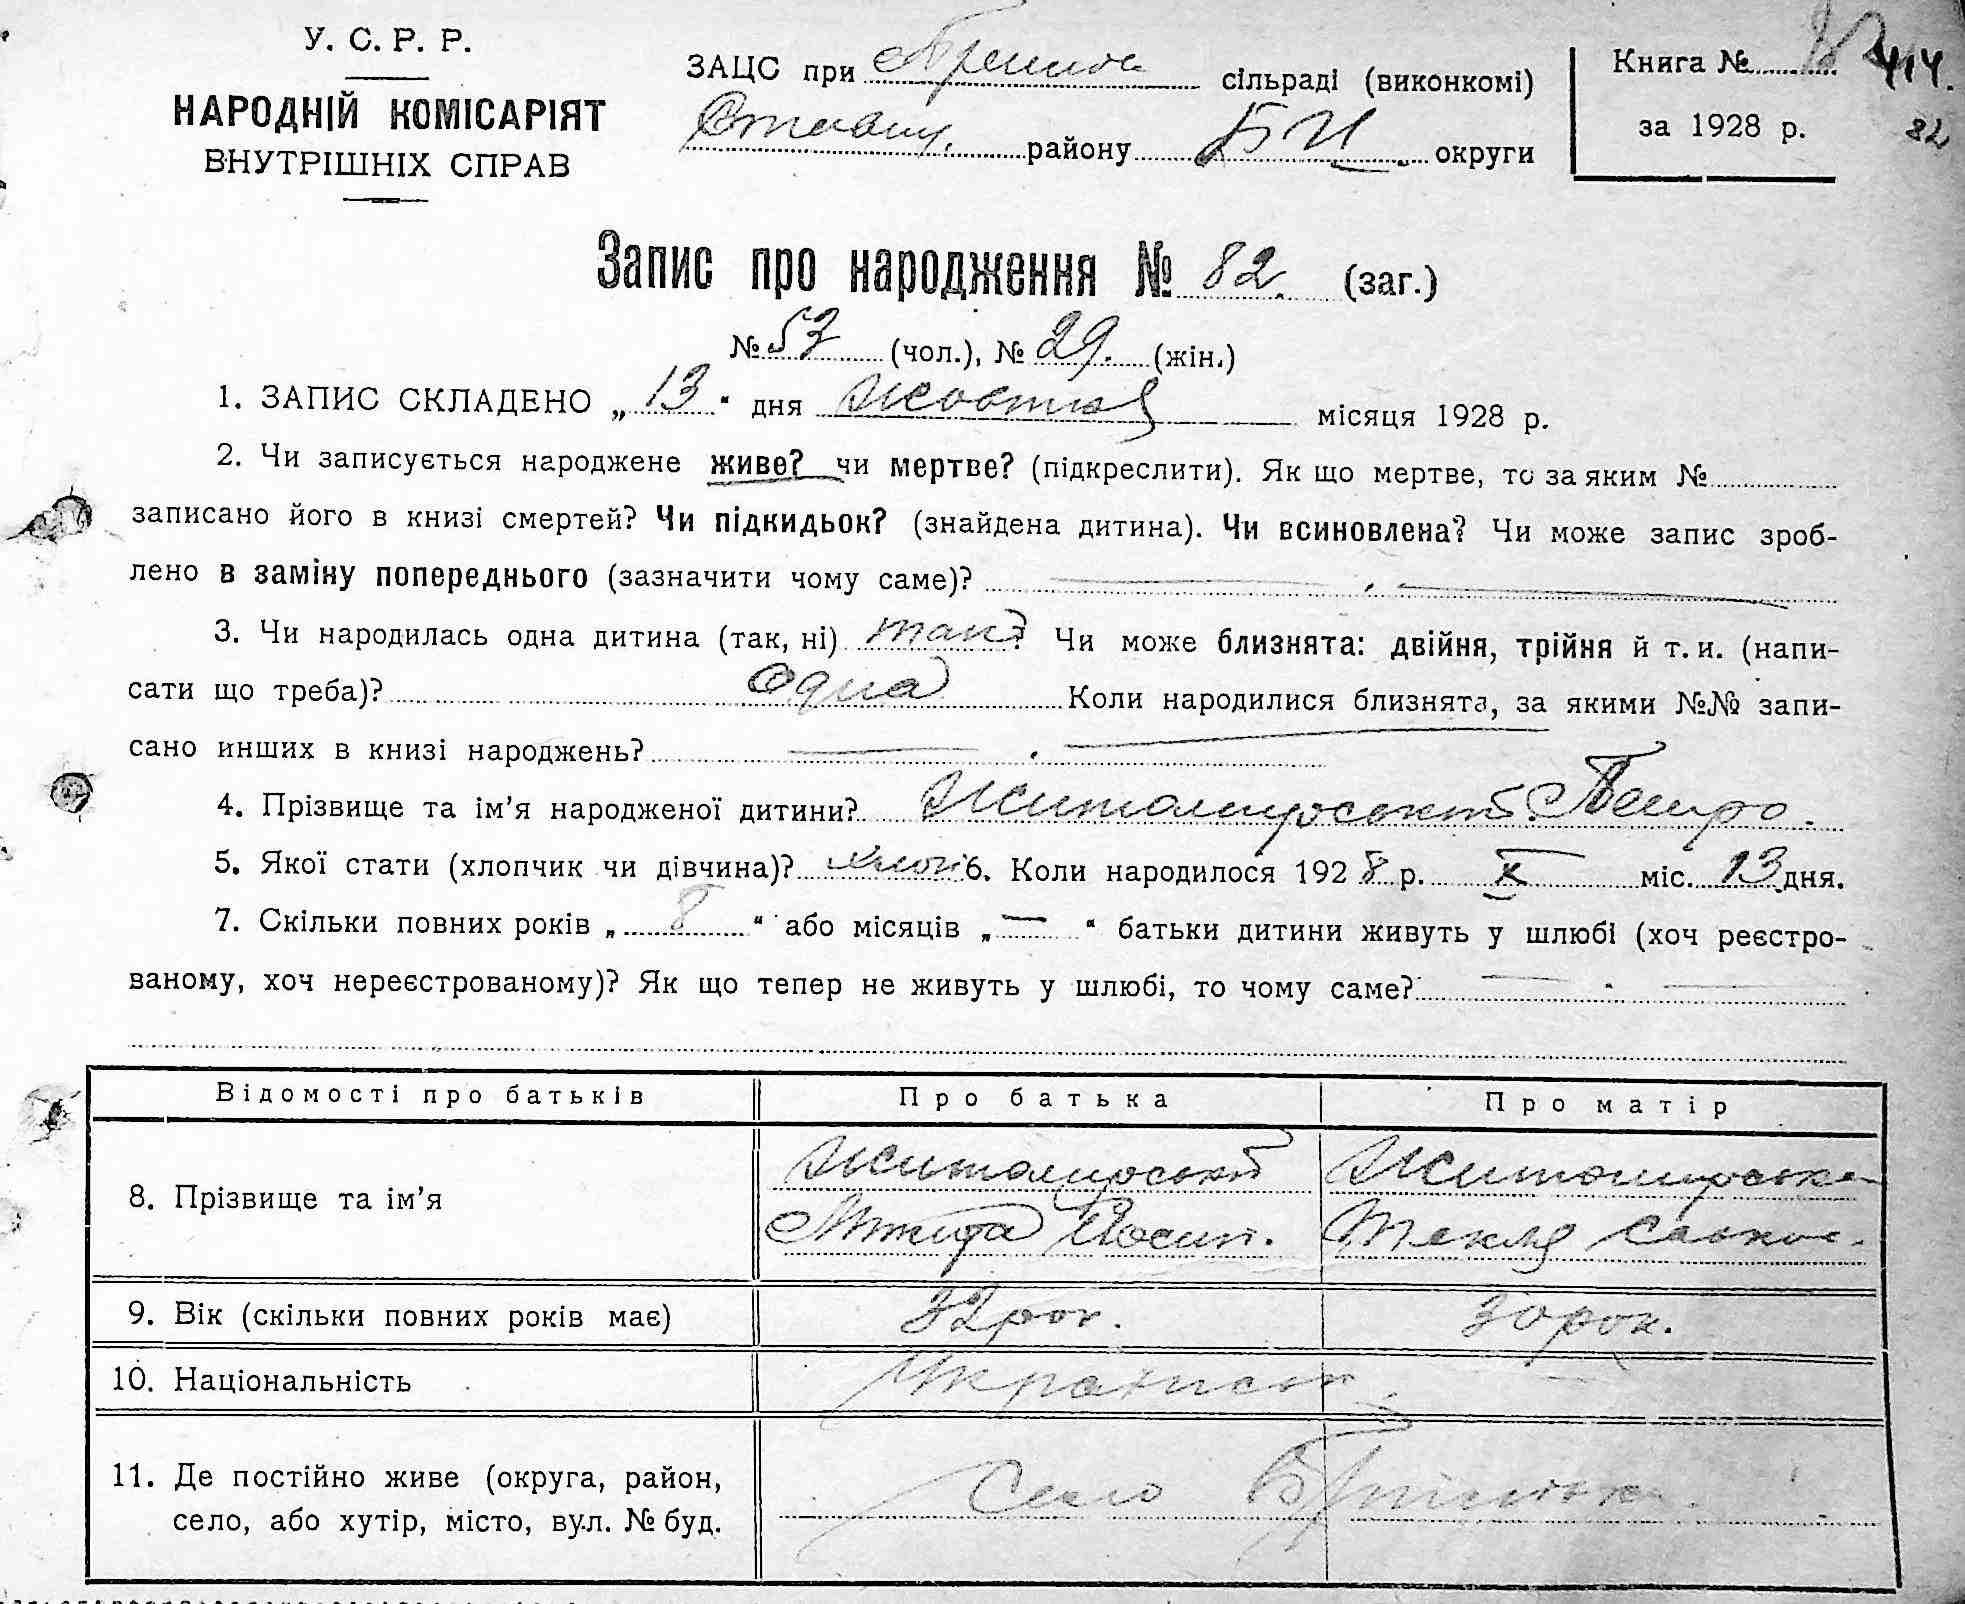 У. С. Р. Р.
НАРОДНІЙ КОМІСАРІЯТ
ВНУТРІШНІХ СПРАВ
ЗАЦС при сільраді (виконкомі)
району округи
Книга № 414.
за 1928 р. 82
Запис про народження № 82. (заг.)
№ 53 (чол.), № 29. (жін.)
1. ЗАПИС СКЛАДЕНО „ 13 “ дня жовтня місяця 1928 р.
2. Чи записується народжене живе? чи мертве? (підкреслити). Як що мертве, то за яким №
записано його в книзі смертей? Чи підкидьок? (знайдена дитина). Чи всиновлена? Чи може запис зроб-
лено в заміну попереднього (зазначити чому саме)? —
3. Чи народилась одна дитина (так, ні) так? Чи може близнята: двійня, трійня й т. и. (напи-
сати що треба)? Одна Коли народилися близнята, за якими №№ запи-
сано инших в книзі народжень? —
4. Прізвище та ім’я народженої дитини? Житомирський Петро.
5. Якої стати (хлопчик чи дівчина)? хлоп 6. Коли народилося 1928 р. X міс. 13 дня.
7. Скільки повних років „ 8 “ або місяців „ — “ батьки дитини живуть у шлюбі (хоч реєстро-
ваному, хоч нереєстрованому)? Як що тепер не живуть у шлюбі, то чому саме? —
Відомості про батьків Про батька Про матір
8. Прізвище та ім’я Житомирський Житомирська
Микита Йосип. Текля
9. Вік (скільки повних років має) 32 рок. 30 рок.
10. Національність Українськ
11. Де постійно живе (округа, район,
село, або хутір, місто, вул. № буд. Село